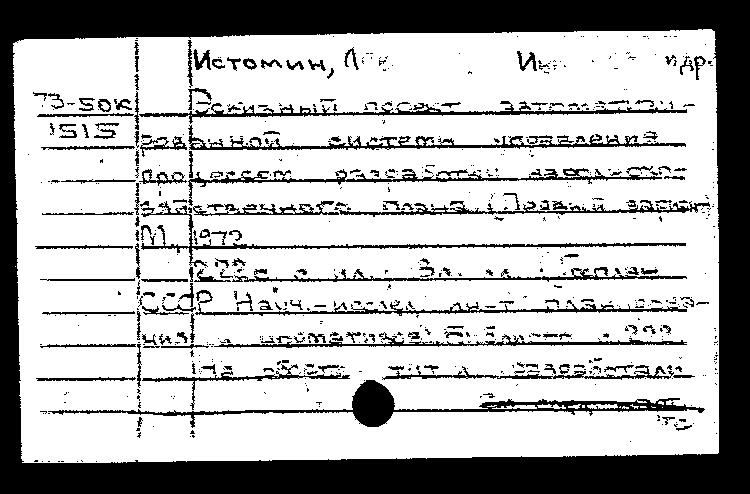 Истомин, и др.
73-50к Эскизный проект автоматизи-
1515 рованной системы управления
процессом разработки народнохо-
зяйственного плана (Первый вариант
М., 1972
222 с. с ил.; 3 л. ил. (Госплан
СССР Науч.-исслед. ин-т планирова-
ния и нормативов). Библиогр.: с. 222
На обороте тит. л. разработали